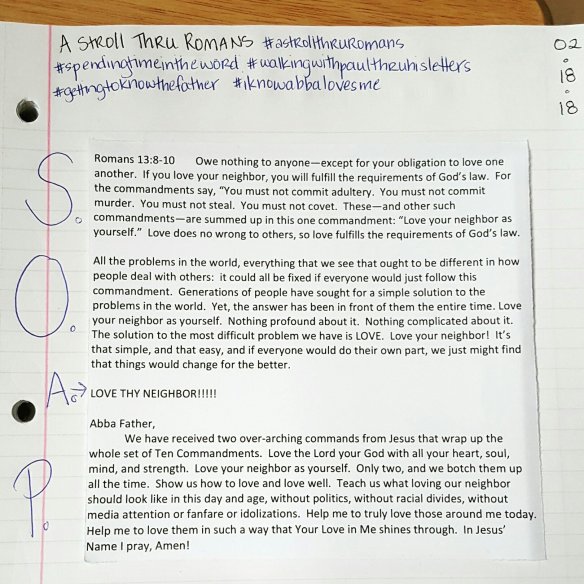 A STROLL THRU ROMANS #astrollthruromans
#spendingtimeintheword #walkingwithpaulthruhisletters
#gettingtoknowthefather #iknowabbalovesme
02
18
18
S.
Romans 13:8-10 Owe nothing to anyone—except for your obligation to love one
another. If you love your neighbor, you will fulfill the requirements of God's law. For
the commandments say, "You must not commit adultery. You must not commit
murder. You must not steal. You must not covet. These—and other such
commandments—are summed up in this one commandment: "Love your neighbor as
yourself." Love does no wrong to others, so love fulfills the requirements of God's law.
O.
All the problems in the world, everything that we see that ought to be different in how
people deal with others: it could all be fixed if everyone would just follow this
commandment. Generations of people have sought for a simple solution to the
problems in the world. Yet, the answer has been in front of them the entire time. Love
your neighbor as yourself. Nothing profound about it. Nothing complicated about it.
The solution to the most difficult problem we have is LOVE. Love your neighbor! It's
that simple, and that easy, and if everyone would do their own part, we just might find
that things would change for the better.
A. → LOVE THY NEIGHBOR!!!!!
P.
Abba Father,
We have received two over-arching commands from Jesus that wrap up the
whole set of Ten Commandments. Love the Lord your God with all your heart, soul,
mind, and strength. Love your neighbor as yourself. Only two, and we botch them up
all the time. Show us how to love and love well. Teach us what loving our neighbor
should look like in this day and age, without politics, without racial divides, without
media attention or fanfare or idolizations. Help me to truly love those around me today.
Help me to love them in such a way that Your Love in Me shines through. In Jesus'
Name I pray, Amen!